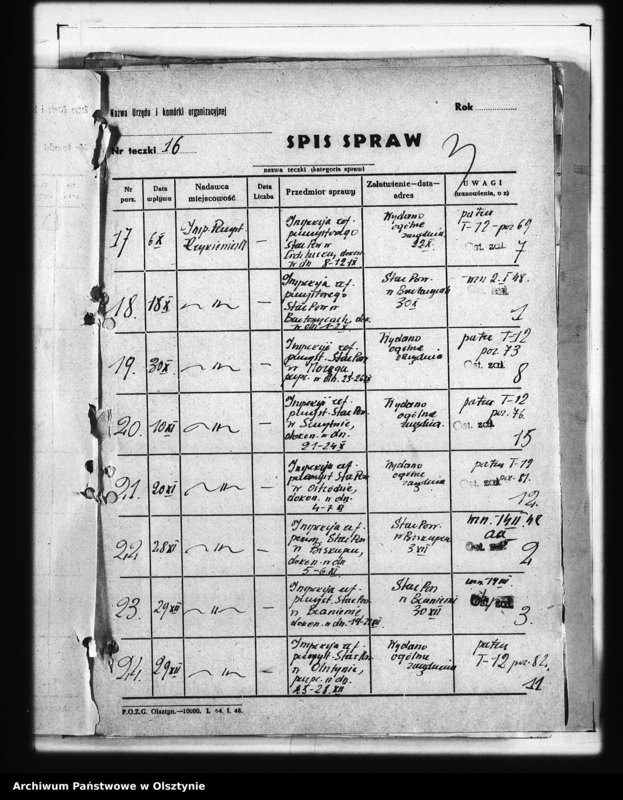 Nazwa Urzędu i komórki organizacyjnej
Rok
Nr teczki 16
SPIS SPRAW
3
nazwa teczki (kategoria spraw)
Nr porz.
Data wpływu
Nadawca miejscowość
Data Liczba
Przedmiot sprawy
Załatwienie—data—adres
UWAGI (wznowienia, o z)
17
6 X
Insp. Przyst.
—
Inspekcja ref.
przemysłowego
Star. Pow. w
dokon.
w dn. 8-12 IX
Wydano
ogólne
zarządzenia
22 X
patrz
T-12 - poz 69
Ost. zał.
7
18.
18 X
— „ —
—
Inspekcja ref.
przemysłowego
Star. Pow. w
Bartoszycach, dok.
w dn. 1-2 X
Star. Pow.
w Bartoszycach
30 X
wzn 2. I 48.
Ost. zał.
1
19.
30 X
— „ —
—
Inspekcji ref.
przemysł. Star. Pow.
w Morągu
w dn. 23-26 IX
Wydano
ogólne
zarządzenia
patrz T-12
poz 73
Ost. zał.
8
20.
10 XI
— „ —
—
Inspekcji ref.
przemysł. Star. Pow.
w Szczytnie,
dokon. w dn.
21-24 X
Wydano
ogólne
zarządzenia.
patrz T-12
poz. 76.
Ost. zał.
15
21.
20 XI
— „ —
—
Inspekcja ref.
przemysł. Star. Pow.
w Ostródzie,
dokon. w dn.
4-7 XI
Wydano
ogólne
zarządzenia
patrz T-12
poz. 81.
Ost. zał.
12.
22.
28 XI
— „ —
—
Inspekcja ref.
przem. Star. Pow.
w Biskupcu,
dokon. w dn
5-6 XI
Star. Pow.
w Biskupcu
3 XII
wzn. 14 II 48
aa
Ost. zał.
2
23.
29 XII
— „ —
—
Inspekcja ref.
przemysł. Star. Pow.
w Braniewie,
dokon. w dn.
Star. Pow
w Braniewie
30 XII
Ost. zał.
3.
24.
29 XII
— „ —
—
Inspekcja ref.
przemysł. Star. Pow.
w Olsztynie,
w dn.
25-28 XII
Wydano
ogólne
zarządzenia
patrz
T-12 poz. 82.
11
P.O.Z.G. Olsztyn.—10000. I. 64. I. 48.
Archiwum Państwowe w Olsztynie